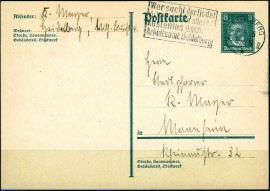 Absender: K. Mayer,
Heidelberg,
Wohnort:
Straße, Hausnummer,
Gebäudeteil, Stockwerk
Postkarte
Wer sucht der findet
kostenlos durch
Arbeitsamt Heidelberg
8
Deutsches Reich
Herrn
Stadtpfarrer
K. Mayer
in Mannheim
Rheinaustr. 32
Straße, Hausnummer,
Gebäudeteil, Stockwerk